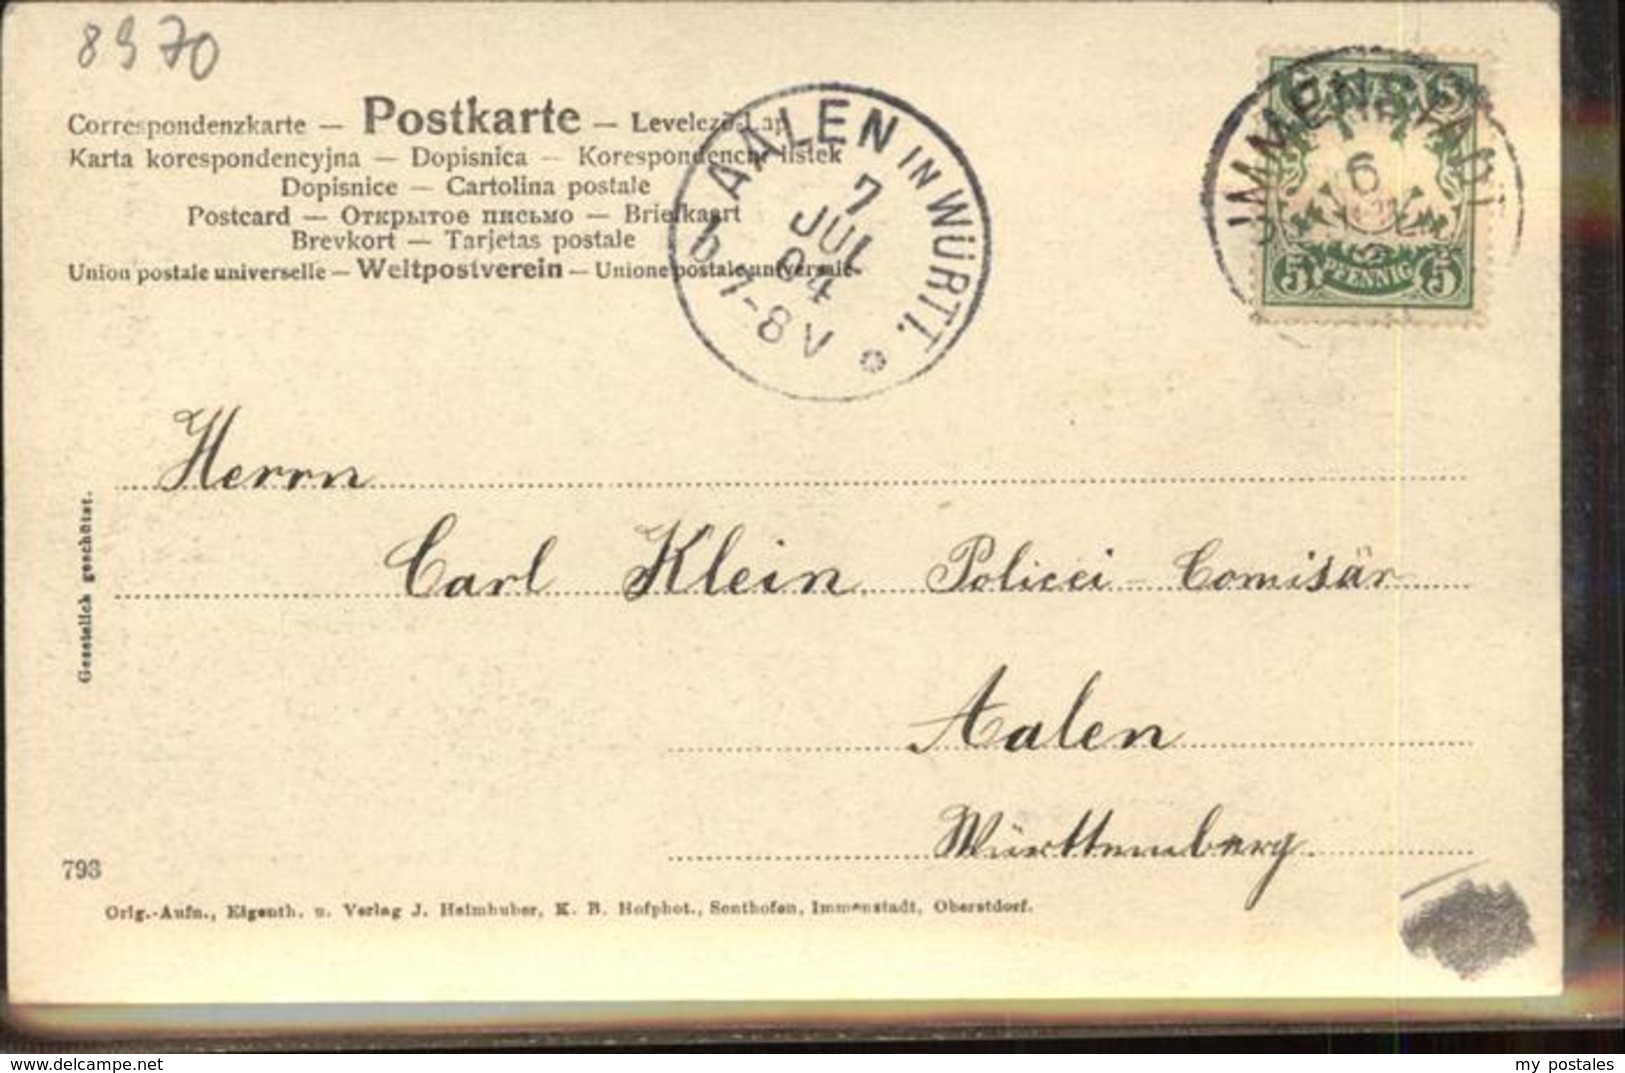 8970
Correspondenzkarte — Postkarte — Levelező-Lap
Karta korespondencyjna — Dopisnica — Korespondenční lístek
Dopisnice — Cartolina postale
Postcard — Открытое письмо — Briefkaart
Brevkort — Tarjetas postale
Union postale universelle — Weltpostverein — Unione postale universale
b AALEN IN WÜRTT.
7
JUL
04
7-8 V
IMMENSTADT
6
JUL
5 PFENNIG 5
Herrn
Carl Klein Policei - Comisär
Aalen
Württemberg
Gesetzlich geschützt.
793
Orig.-Aufn., Eigenth. u. Verlag J. Heimhuber, K. B. Hofphot., Sonthofen, Immenstadt, Oberstdorf.
www.delcampe.net
my_postales